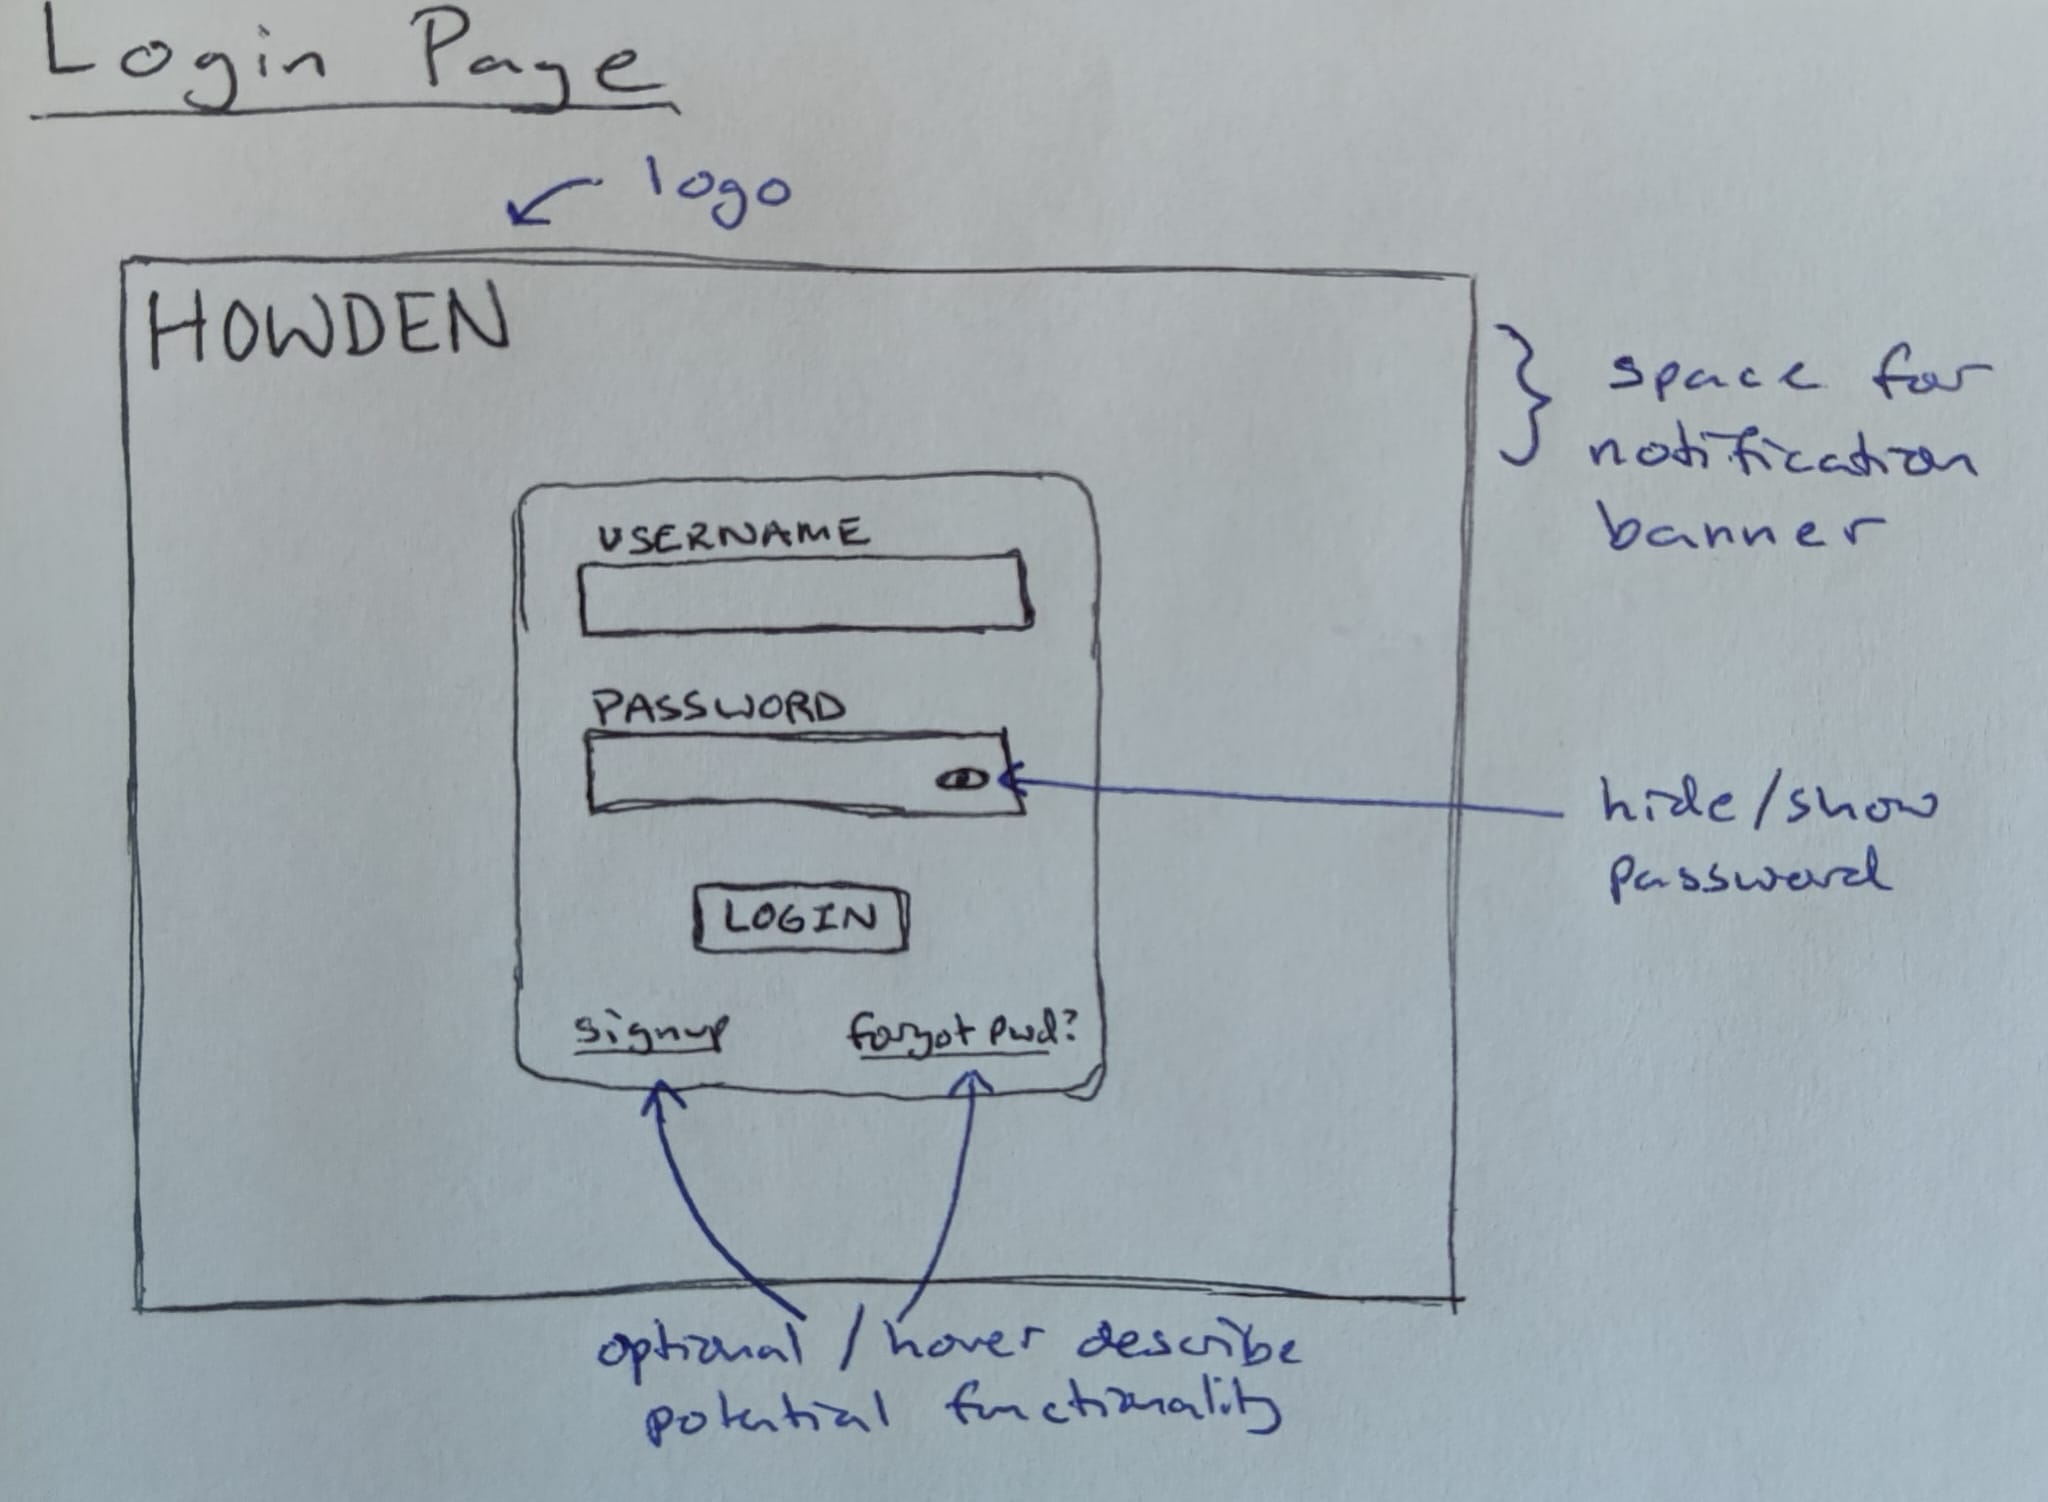 Login Page
logo
HOWDEN
space for
notification
banner
USERNAME
PASSWORD
hide/show
password
LOGIN
signup
forgot pwd?
optional / hover describe
potential functionality